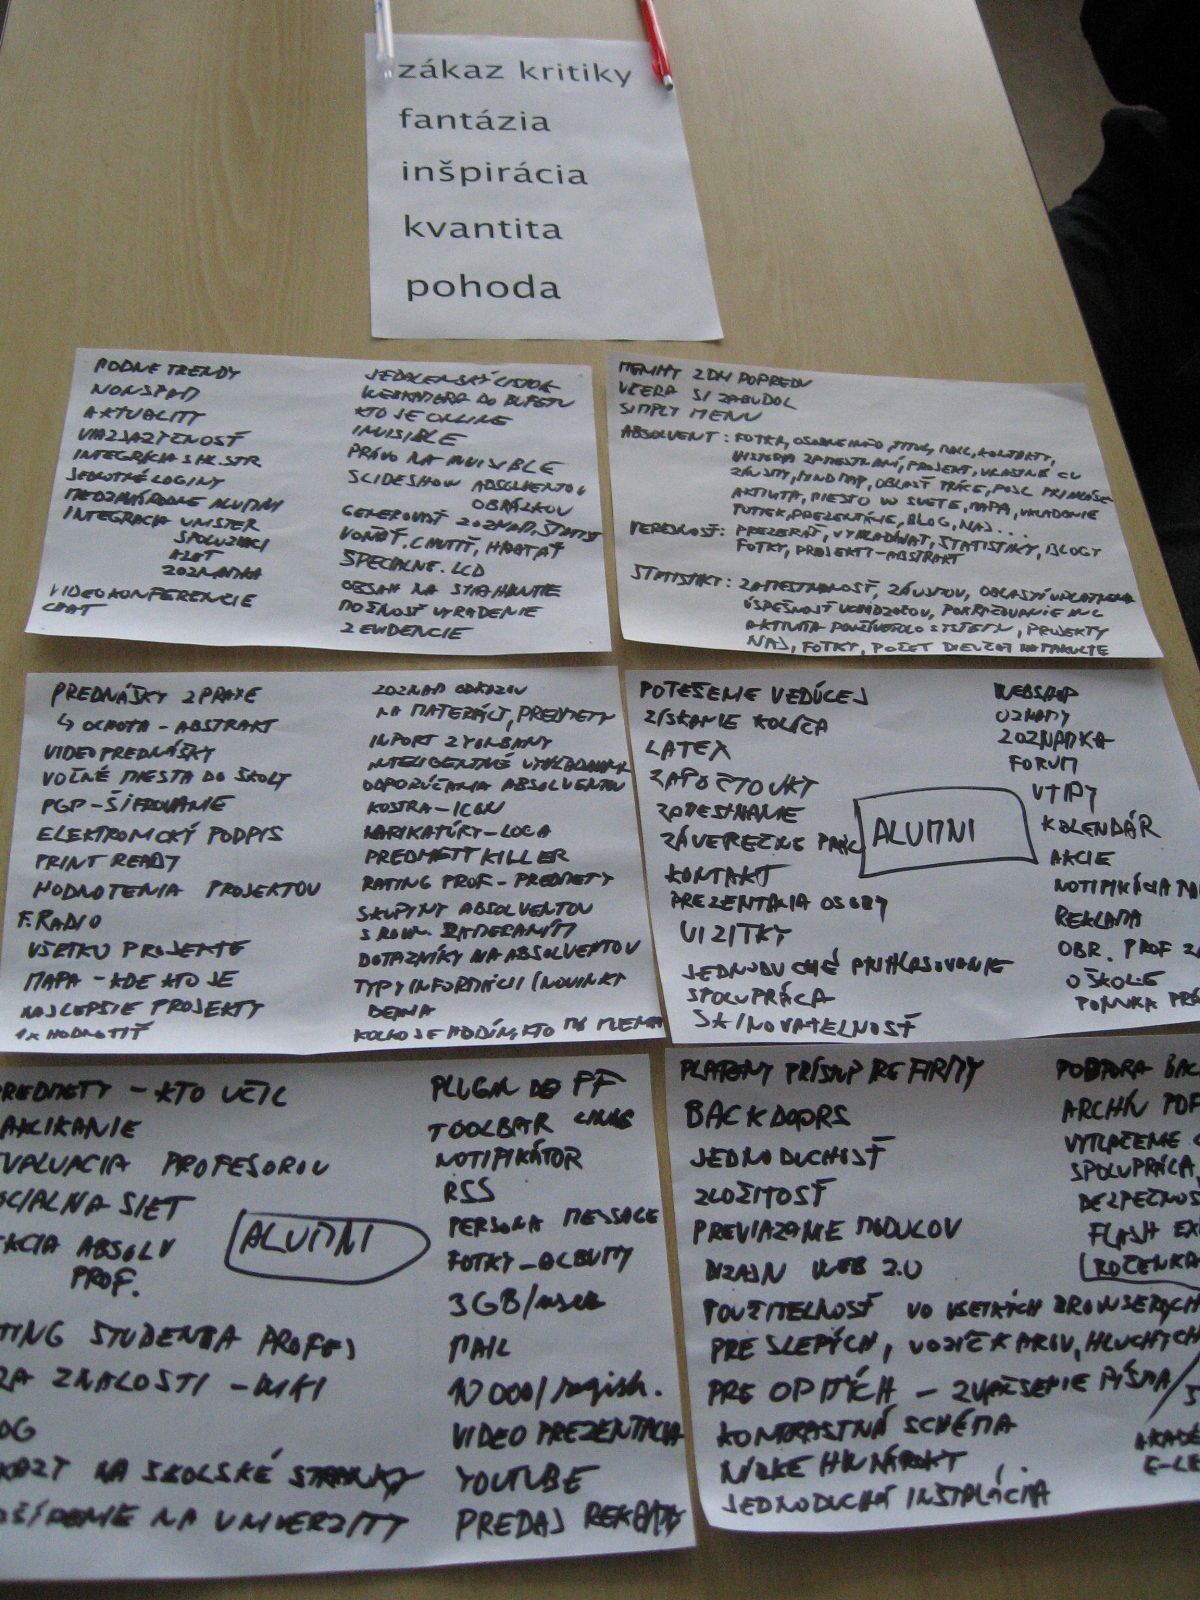 zákaz kritiky
fantázia
inšpirácia
kvantita
pohoda
MODNE TRENDY
NONSPAM
AKTUALITY
VIAZJAZYCNOSŤ
INTEGRÁCIA
JEDNOTNÉ LOGINY
MEDZINÁRODNE ALUMNI
INTEGRACIA UNISTER
SPOLUZIACI
AZET
ZOZNAMKA
VIDEOKONFERENCIE
CHAT
JEDALENSKÝ LISTOK
WEBKAMERA DO BUFETU
KTO JE ONLINE
INVISIBLE
PRÁVO NA INVISIBLE
SLIDESHOW ABSOLVENTOV
OBRÁZKOV
GENEROVAŤ ZOZNAM, ŠTATIST
VOŇAŤ, CHUTIŤ, HMATAŤ
ŠPECIALNE LCD
OBSAH NA STIAHNUTIE
MOŽNOSŤ VYRADENIE
Z EVIDENCIE
MEMMY 2 DNI POPREDU
VČERA SI ZABUDOL
SIMPLY MENU
ABSOLVENT: FOTKA, OSOBNE INFO, TITUL, MAIL, KONTAKTY,
HISTORIA ZAMESTNANÍ, PROJEKT, VLASTNÉ CV
ZÁUJMY, MINDMAP, OBLASŤ PRÁCE, POSL PRIHLÁSE
AKTIVITA, MIESTO VO SVETE, MAPA, UKLADANIE
PREZENTÁCIE, BLOG, NAJ...
VEREJNOSŤ: PREZERAŤ, VYHLADÁVAŤ, STATISTIKY, BLOGY
FOTKY, PROJEKTY-ABSTRAKT
STATISTIKY: ZAMESTNANOSŤ, ZÁUJMOV, OBLASTÍ UPLATNENIA
ÚSPEŠNOSŤ UCHÁDZAČOV, POKRAČOVANIE ING
AKTIVITA POUŽÍVATEĽOV SYSTÉM, PROJEKTY
NAJ, FOTKY, POČET DIEVČAT NA FAKULTE
PREDNÁŠKY Z PRAXE
↳ OCHOTA - ABSTRAKT
VIDEOPREDNÁŠKY
VOĽNÉ MIESTA DO ŠKOLY
PGP - ŠIFROVANIE
ELEKTRONICKÝ PODPIS
PRINT READY
HODNOTENIA PROJEKTOV
F. RADIO
VŠETKO PROJEKTE
MAPA - KDE KTO JE
NAJLEPSIE PROJEKTY
1x HODNOTIŤ
ZOZNAM ODKAZOV
NA MATERIÁLY, PREDMETY
IMPORT Z YONBANY
INTELIGENTNÉ VYHĽADÁVANIE
ODPORÚČANIA ABSOLVENTOV
KOSTRA-ICON
KARIKATÚRY-LOGA
PREDMETY KILLER
RATING PROF - PREDMETY
SKUPINY ABSOLVENTOV
S ROVN. ZAMERANÍM
DOTAZNÍKY NA ABSOLVENTOV
TYPY INFORMÁCII (NOVINKY
DEŇNA
KOLKO JE HODÍN, KTO MÁ MENINY
POTEŠENIE VEDÚCEJ
ZÍSKANIE KOLÁČA
LATEX
ZAPOČTOVKY
ZAMESTNANIE
ZÁVEREČNÉ PRÁCE
KONTAKT
PREZENTÁCIA OSOBY
VIZITKY
JEDNODUCHÉ PRIHLASOVANIE
SPOLUPRÁCA
SKINOVATELNOSŤ
ALUMNI
WEBSHOP
OZNAMY
ZOZNAMKA
FORUM
VTIPY
KALENDÁR
AKCIE
NOTIFIKÁCIA
REKLAMA
OBR. PROF
O ŠKOLE
PONUKA
PREDMETY - KTO UČIL
AKLIKANIE
EVALUACIA PROFESOROV
OCIALNA SIET
KCIA ABSOLV
PROF.
ALUMNI
TING STUDENTA PROFESJ
ZA ZNALOSTI - WIKI
OG
KAZY NA SKOLSKÉ STRANKY
NA UNIVERZITY
PLUGIN DO FF
TOOLBAR LINUS
NOTIFIKÁTOR
RSS
PERSONA MESSAGE
FOTKY-ALBUMY
3GB/user
MAIL
10 000/regist.
VIDEO PREZENTACIA
YOUTUBE
PREDAJ REKLAMY
PLATENY PRÍSTUP PRE FIRMY
BACKDOORS
JEDNODUCHOSŤ
ZLOŽITOSŤ
PREVIAZANIE MODULOV
DIZAJN WEB 2.0
POUŽITELNOSŤ VO VSETKÝCH BROWSEROCH
PRE SLEPÝCH, VOZIČKAROV, HLUCHÝCH
PRE OPITÝCH - ZVÄČŠENIE PÍSMA
KONTRASTNÁ SCHÉMA
NÍZKE HW NÁROKY
JEDNODUCHÁ INSTALÁCIA
PODPORA
ARCHÍV PDF
VYTLAČENIE
SPOLUPRÁCA,
BEZPEČNOS
FLASH
ROČENKA
E-LE